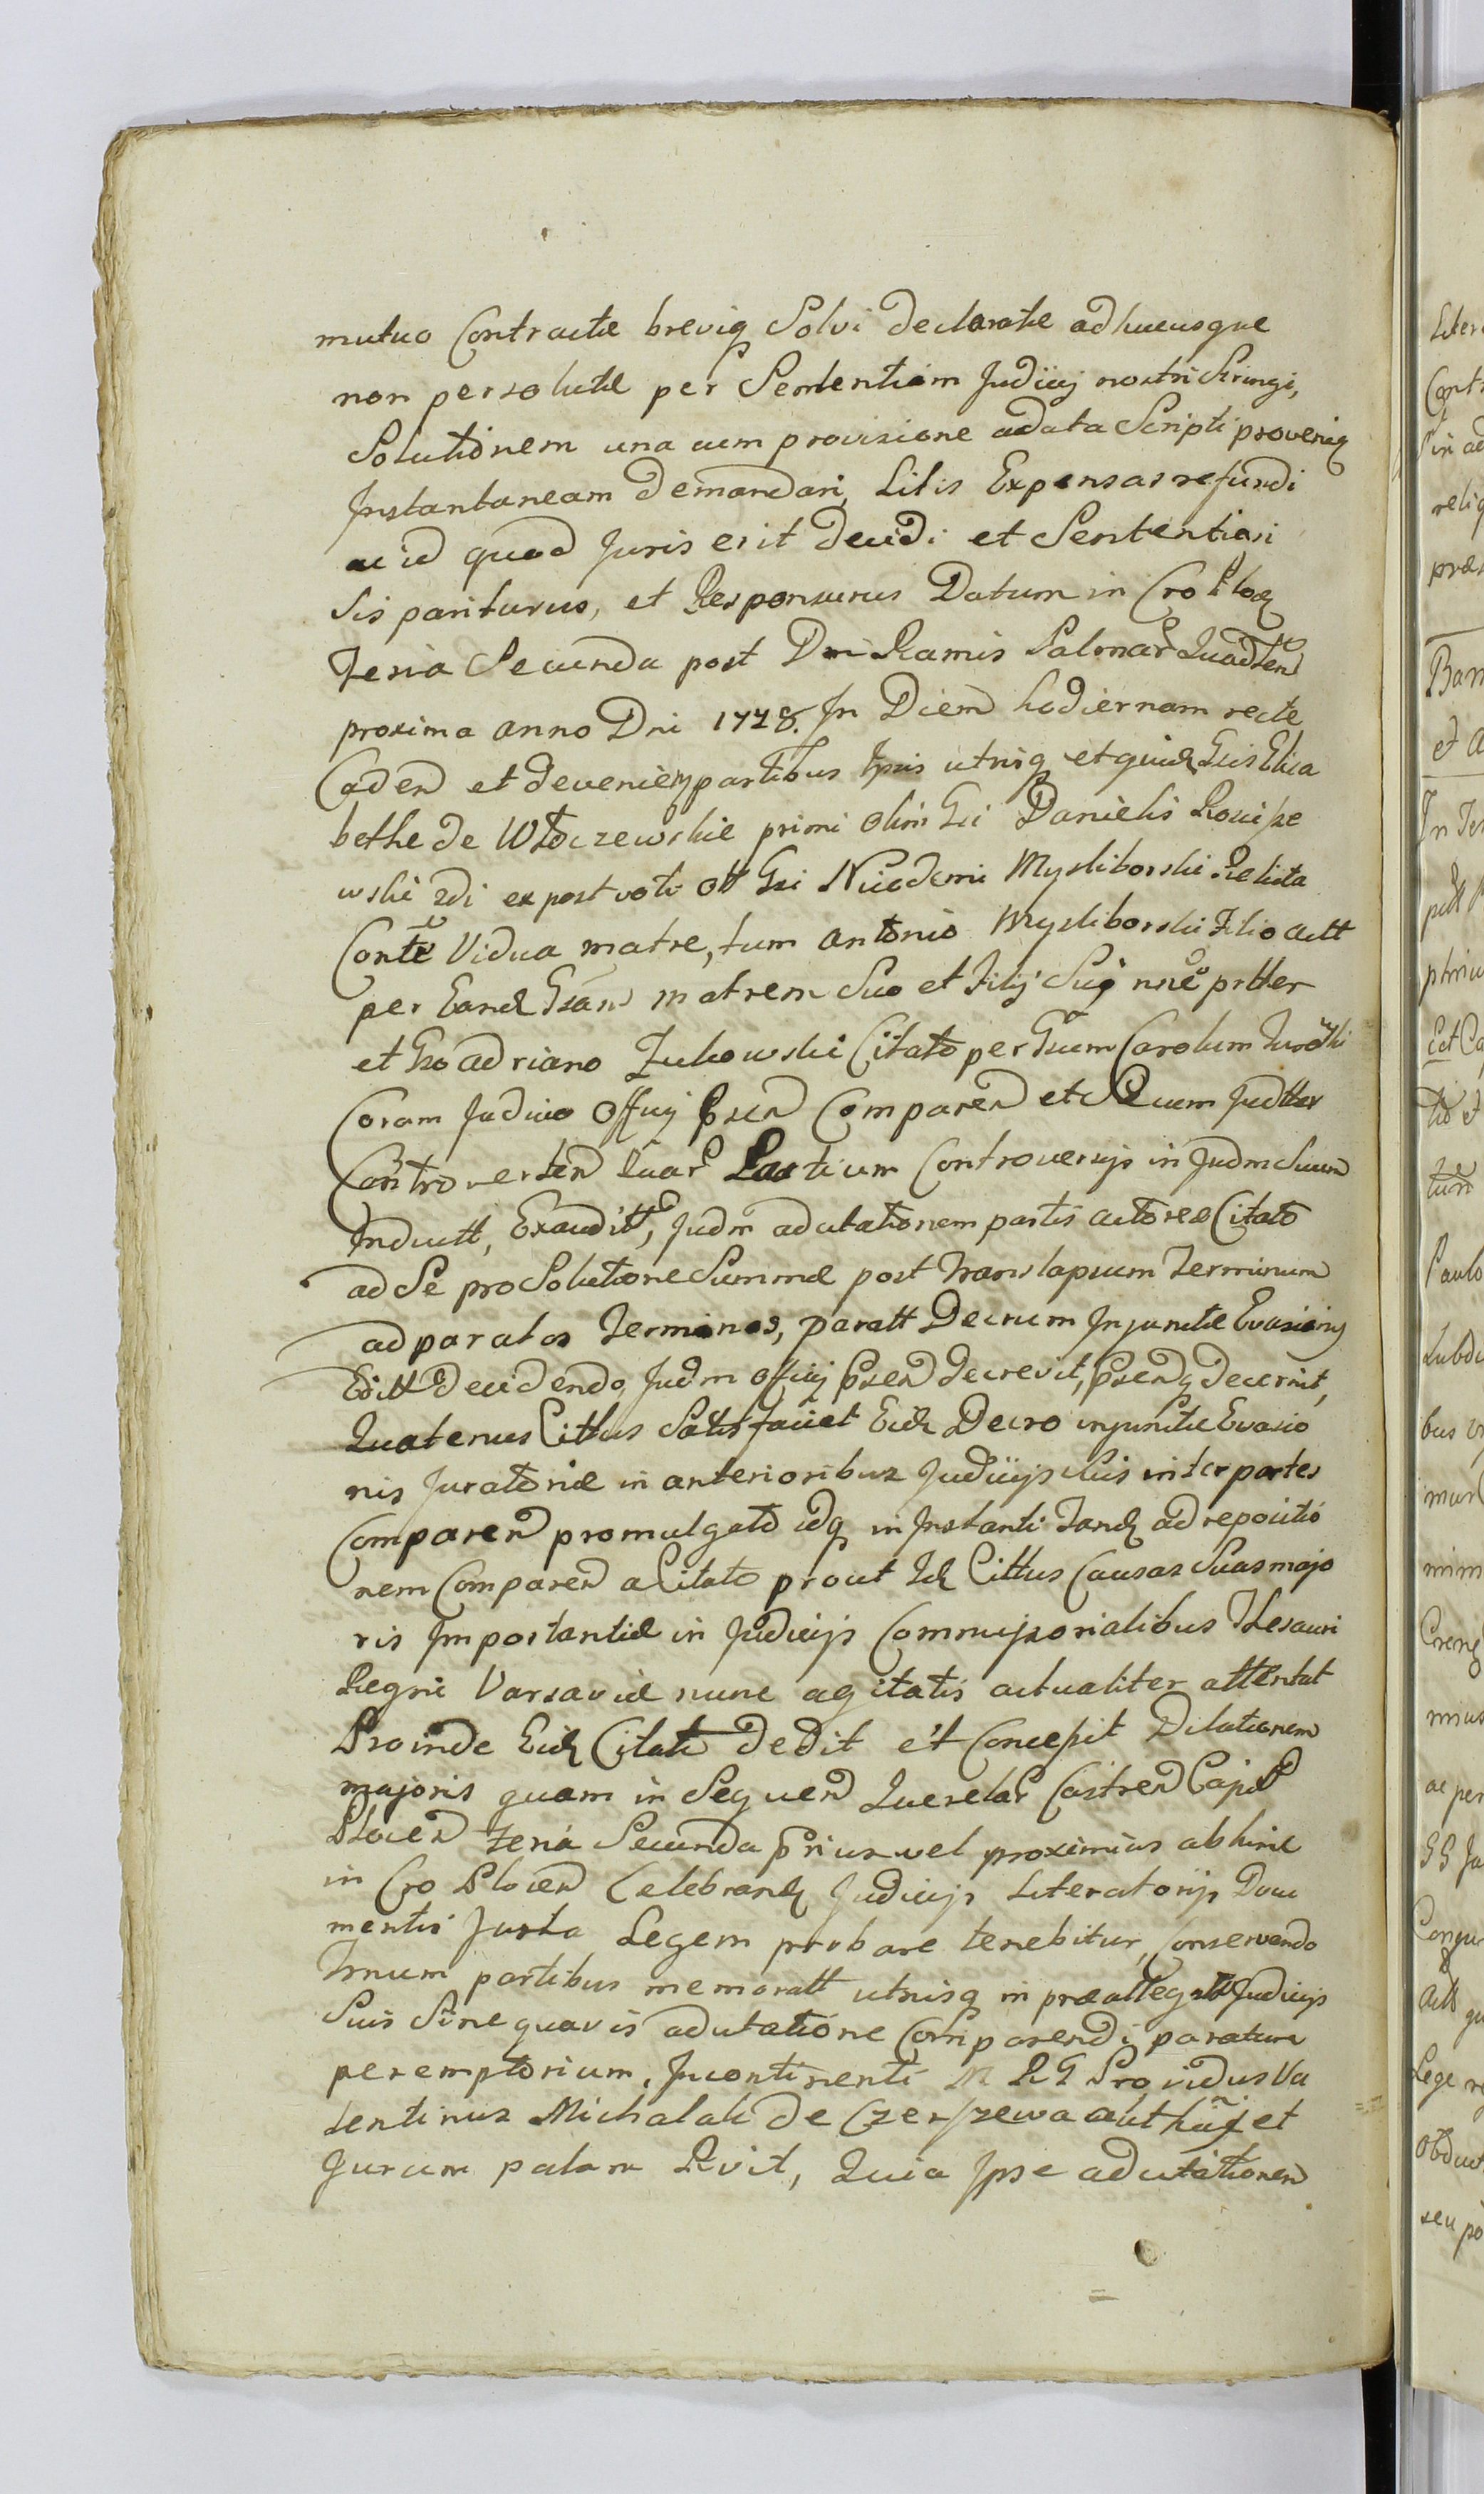 mutuo Contractæ breviq Solvi declaratæ adhucusque
non persolutæ per Sententiam Judicij nostri Stringi,
Solutionem una cum provisione a data Scripti proveniꝫ
Instantaneam demandari, Litis Expensas refundi
ac id quod Juris erit decidi et Sententiari
Sis pariturus, et Responsurus Datum in Cro Ploꝫ
Feria Secunda post Dni Ramis Palmar
proxima anno Dni 1778. In Diem hodiernam recte
Caden et devenien partibus Ipsis utrisq et quidꝫ Gsis Elisa
bethe de Włoczewskie primi olim Gsi Danielis
wski 2di ex post voti olt Gsi Nicodemi Mysliborski Relicta
Conte Vidua matre, tum Antonio Mysliborski Filio actt
per Eandꝫ Gsam matrem Suo et Filij Sui nne prtter
et Gso Adriano Zukowski Citato per Gsum Carolum
Coram Judicio Officij Psen Comparen et Secum Judtter
Controverten Quar Partium Controversijs in Judm Suum
Inductt, Exauditt, Judm ad citationem partis actoreæ Citato
ad Se pro Solutione Summæ post Translapsum Terminum
ad paratos Terminos, paratt Decrum Injunctæ Evasionis
Decidendo, Judm officij Psen decrevit, Psenq decernit,
Quatenus Cittus Satisfaciet Eidꝫ Decro injunctæ Evasio
nis Juratoriæ in anterioribus Judicijs Suis inter partes
Comparen promulgato idq in Instanti Tandꝫ ad repositio
nem Comparen a Citato prout Idꝫ Cittus Causas Suas majo
ris Importantiæ in Judicijs Commissorialibus Thesauri
Regni Varsaviæ nunc agitatis actualiter attentat
Proinde Eidꝫ Citato dedit et Concessit Dilationem
majoris quam in Sequen Querelar Castren Capit
Plocen Feria Secunda prius vel proximius abhinc
in Cro Plocen Celebrandꝫ Judicijs Literatorijs Docu
mentis Juxta Legem probare tenebitur, Conservando
Trnum partibus memoratt utrisq in præallegatt Judicijs
Suis Sine quavis adcitatione Comparendi paratum
peremptorium. Incontinenti M R G Providus Va
lentinus Michalak de Czerszewa authen et
Juram palam Rvit, Quia Ipse adcitationem